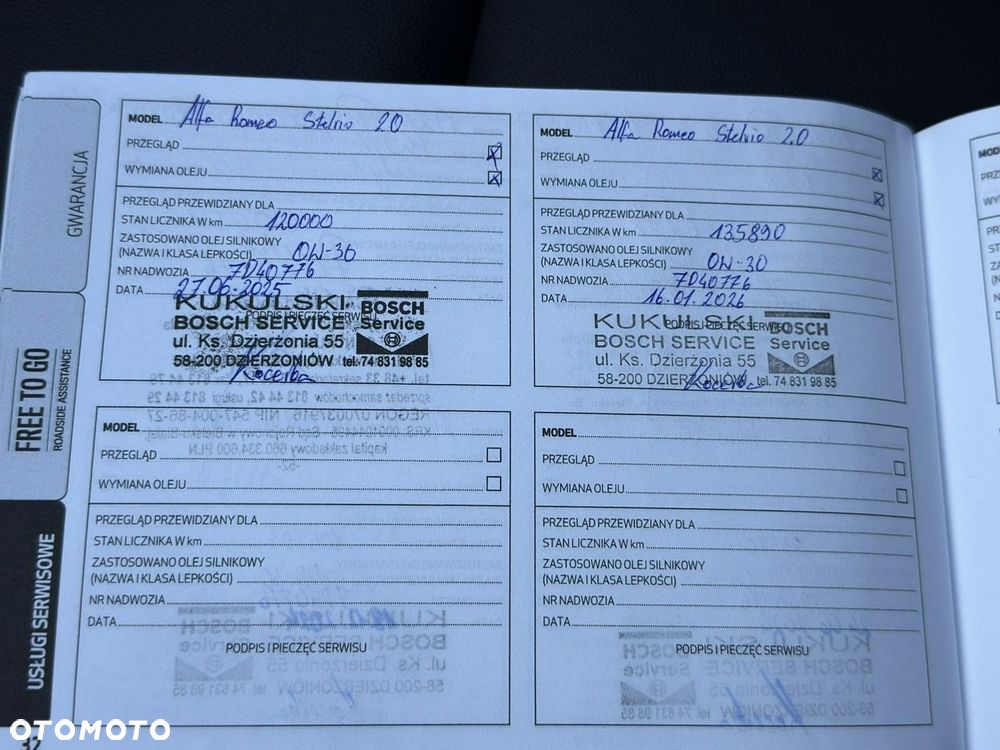 GWARANCJA
FREE TO GO
ROADSIDE ASSISTANCE
USŁUGI SERWISOWE
MODEL Alfa Romeo Stelvio 2.0
PRZEGLĄD
WYMIANA OLEJU
PRZEGLĄD PRZEWIDZIANY DLA
STAN LICZNIKA W km 120000
ZASTOSOWANO OLEJ SILNIKOWY
(NAZWA I KLASA LEPKOŚCI) 0W-30
NR NADWOZIA 7D40776
DATA 27.06-2025
PODPIS I PIECZĘĆ SERWISU
KUKULSKI
BOSCH SERVICE
ul. Ks. Dzierżonia 55
58-200 DZIERŻONIÓW
BOSCH
Service
tel. 74 831 98 85
MODEL Alfa Romeo Stelvio 2.0
PRZEGLĄD
WYMIANA OLEJU
PRZEGLĄD PRZEWIDZIANY DLA
STAN LICZNIKA W km 135890
ZASTOSOWANO OLEJ SILNIKOWY
(NAZWA I KLASA LEPKOŚCI) 0W-30
NR NADWOZIA 7D40776
DATA 16.01.2026
PODPIS I PIECZĘĆ SERWISU
KUKULSKI
BOSCH SERVICE
ul. Ks. Dzierżonia 55
58-200 DZIERŻONIÓW
BOSCH
Service
tel. 74 831 98 85
MODEL
PRZEGLĄD
WYMIANA OLEJU
PRZEGLĄD PRZEWIDZIANY DLA
STAN LICZNIKA W km
ZASTOSOWANO OLEJ SILNIKOWY
(NAZWA I KLASA LEPKOŚCI)
NR NADWOZIA
DATA
PODPIS I PIECZĘĆ SERWISU
MODEL
PRZEGLĄD
WYMIANA OLEJU
PRZEGLĄD PRZEWIDZIANY DLA
STAN LICZNIKA W km
ZASTOSOWANO OLEJ SILNIKOWY
(NAZWA I KLASA LEPKOŚCI)
NR NADWOZIA
DATA
PODPIS I PIECZĘĆ SERWISU
32
OTOMOTO